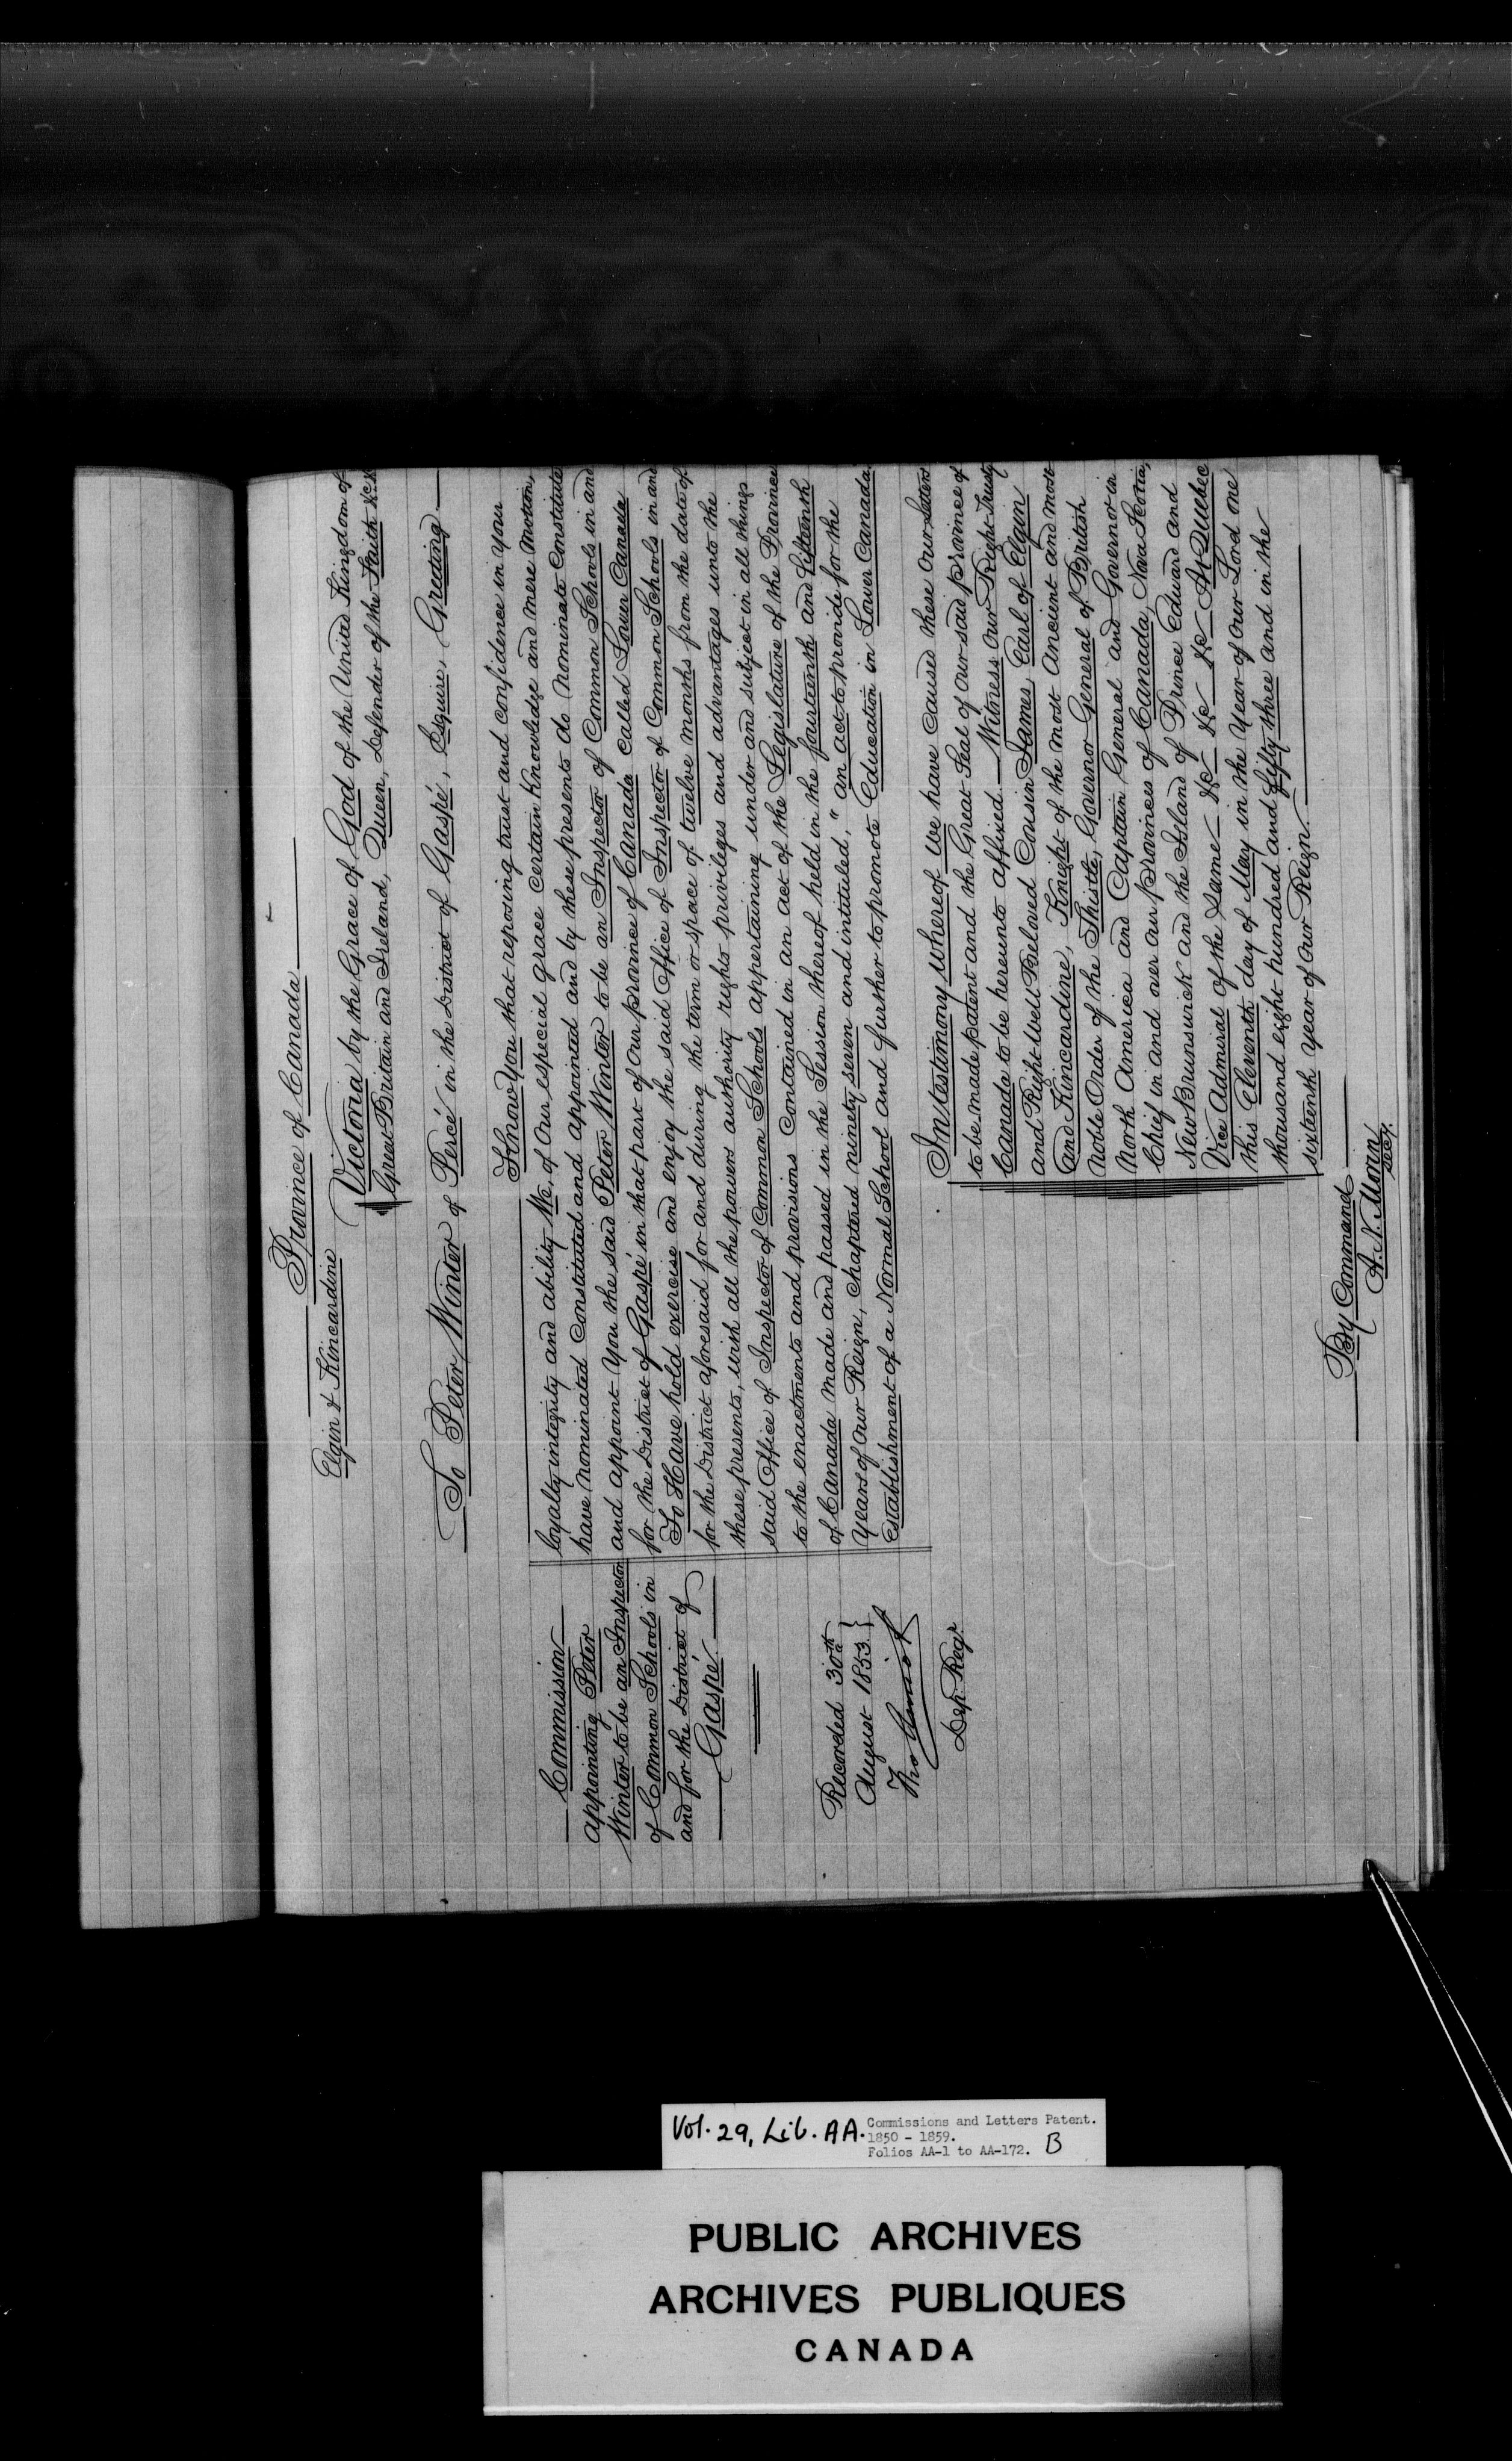 Province of Canada
Elgin & Kincardine
Victoria by the Grace of God of the United Kingdom of
Great Britain and Ireland, Queen, Defender of the Faith &c &c
To Peter Winter of Percé in the District of Gaspé, Esquire, Greeting
Know You that reposing trust and confidence in your
loyalty integrity and ability We, of Our especial grace certain knowledge and mere motion,
have nominated Constituted and appointed and by these presents do nominate Constitute
and appoint You the said Peter Winter to be an Inspector of Common Schools in and
for the District of Gaspé in that part of Our province of Canada called Lower Canada
To Have hold exercise and enjoy the said Office of Inspector of Common Schools in and
for the District aforesaid for and during the term or space of twelve months from the date of
these presents, with all the powers authority rights privileges and advantages unto the
said Office of Inspector of Common Schools appertaining under and subject in all things
to the enactments and provisions contained in an act of the Legislature of the Province
of Canada made and passed in the Session thereof held in the fourteenth and fifteenth
Years of Our Reign, Chaptered ninety seven and intituled, "an act to provide for the
Establishment of a Normal School and further to promote Education in Lower Canada.
Commission
appointing Peter
Winter to be an Inspector
of Common Schools in
and for the District of
Gaspé.
Recorded 30th
August 1853 }
Tho Amiot
Dep. Regr.
In testimony whereof We have caused these Our Letters
to be made patent and the Great Seal of Our said province of
Canada to be hereunto affixed. Witness Our Right Trusty
and Right Well Beloved Cousin James, Earl of Elgin
and Kincardine, Knight of the most Ancient and most
Noble Order of the Thistle, Governor General of British
North America and Captain General and Governor in
Chief in and over our provinces of Canada, Nova Scotia,
New Brunswick and the Island of Prince Edward and
Vice Admiral of the same &c &c &c At Quebec
this Eleventh day of May in the Year of Our Lord one
thousand eight hundred and fifty three and in the
sixteenth Year of Our Reign.
By Command
A. N. Morin
Secy.
Vol. 29, Lib. AA. Commissions and Letters Patent.
1850 - 1859.
Folios AA-1 to AA-172. B
PUBLIC ARCHIVES
ARCHIVES PUBLIQUES
CANADA